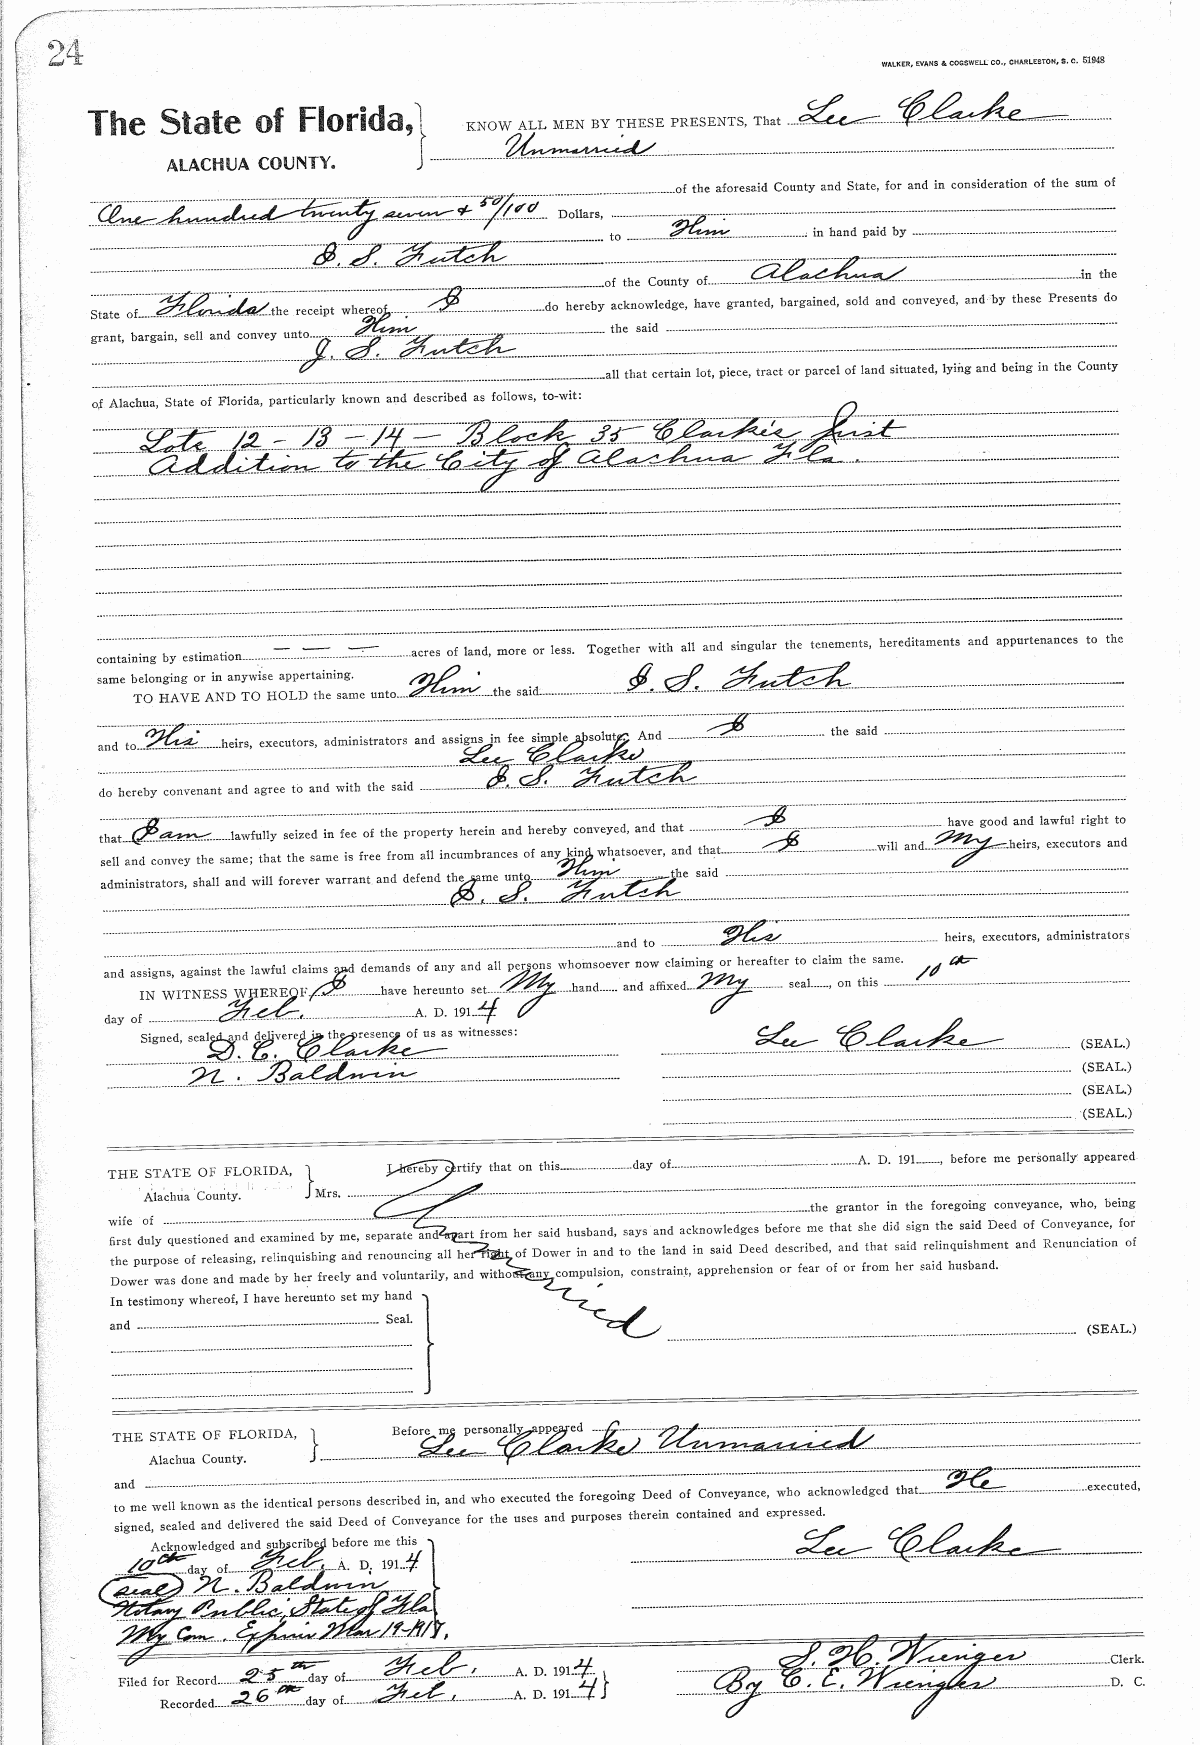 24
WALKER, EVANS & COGSWELL CO., CHARLESTON, S. C. 51948
The State of Florida,
ALACHUA COUNTY.
KNOW ALL MEN BY THESE PRESENTS, That Lee Clarke
Unmarried
of the aforesaid County and State, for and in consideration of the sum of
One hundred twenty seven & 50/100 Dollars,
to Him in hand paid by
J. S. Futch
of the County of Alachua in the
State of Florida the receipt whereof I do hereby acknowledge, have granted, bargained, sold and conveyed, and by these Presents do
grant, bargain, sell and convey unto Him the said
J. S. Futch
all that certain lot, piece, tract or parcel of land situated, lying and being in the County
of Alachua, State of Florida, particularly known and described as follows, to-wit:
Lots 12 - 13 - 14 - Block 35 Clarkes first
Addition to the City of Alachua Fla.
containing by estimation — — — acres of land, more or less. Together with all and singular the tenements, hereditaments and appurtenances to the
same belonging or in anywise appertaining.
TO HAVE AND TO HOLD the same unto Him the said J. S. Futch
and to His heirs, executors, administrators and assigns in fee simple absolute. And I the said
Lee Clarke
do hereby convenant and agree to and with the said J. S. Futch
that I am lawfully seized in fee of the property herein and hereby conveyed, and that I have good and lawful right to
sell and convey the same; that the same is free from all incumbrances of any kind whatsoever, and that I will and My heirs, executors and
administrators, shall and will forever warrant and defend the same unto Him the said
J. S. Futch
and to His heirs, executors, administrators
and assigns, against the lawful claims and demands of any and all persons whomsoever now claiming or hereafter to claim the same.
IN WITNESS WHEREOF, I have hereunto set My hand and affixed My seal, on this 10th
day of Feb. A. D. 1914
Signed, sealed and delivered in the presence of us as witnesses:
D. C. Clarke
N. Baldwin
Lee Clarke (SEAL.)
(SEAL.)
(SEAL.)
(SEAL.)
THE STATE OF FLORIDA,
Alachua County.
I hereby certify that on this day of A. D. 191 , before me personally appeared
Mrs.
wife of the grantor in the foregoing conveyance, who, being
first duly questioned and examined by me, separate and apart from her said husband, says and acknowledges before me that she did sign the said Deed of Conveyance, for
the purpose of releasing, relinquishing and renouncing all her right of Dower in and to the land in said Deed described, and that said relinquishment and Renunciation of
Dower was done and made by her freely and voluntarily, and without any compulsion, constraint, apprehension or fear of or from her said husband.
In testimony whereof, I have hereunto set my hand
and Seal.
(SEAL.)
THE STATE OF FLORIDA,
Alachua County.
Before me personally appeared
Lee Clarke Unmarried
and
to me well known as the identical persons described in, and who executed the foregoing Deed of Conveyance, who acknowledged that He executed,
signed, sealed and delivered the said Deed of Conveyance for the uses and purposes therein contained and expressed.
Acknowledged and subscribed before me this
10th day of Feb. A. D. 1914
Lee Clarke
(Seal) N. Baldwin
Notary Public, State of Fla
My Com. Expires Mar 19-1917.
Filed for Record 25th day of Feb. A. D. 1914
Recorded 26th day of Feb. A. D. 1914
S. H. Wienges Clerk.
By C. E. Wienges D. C.